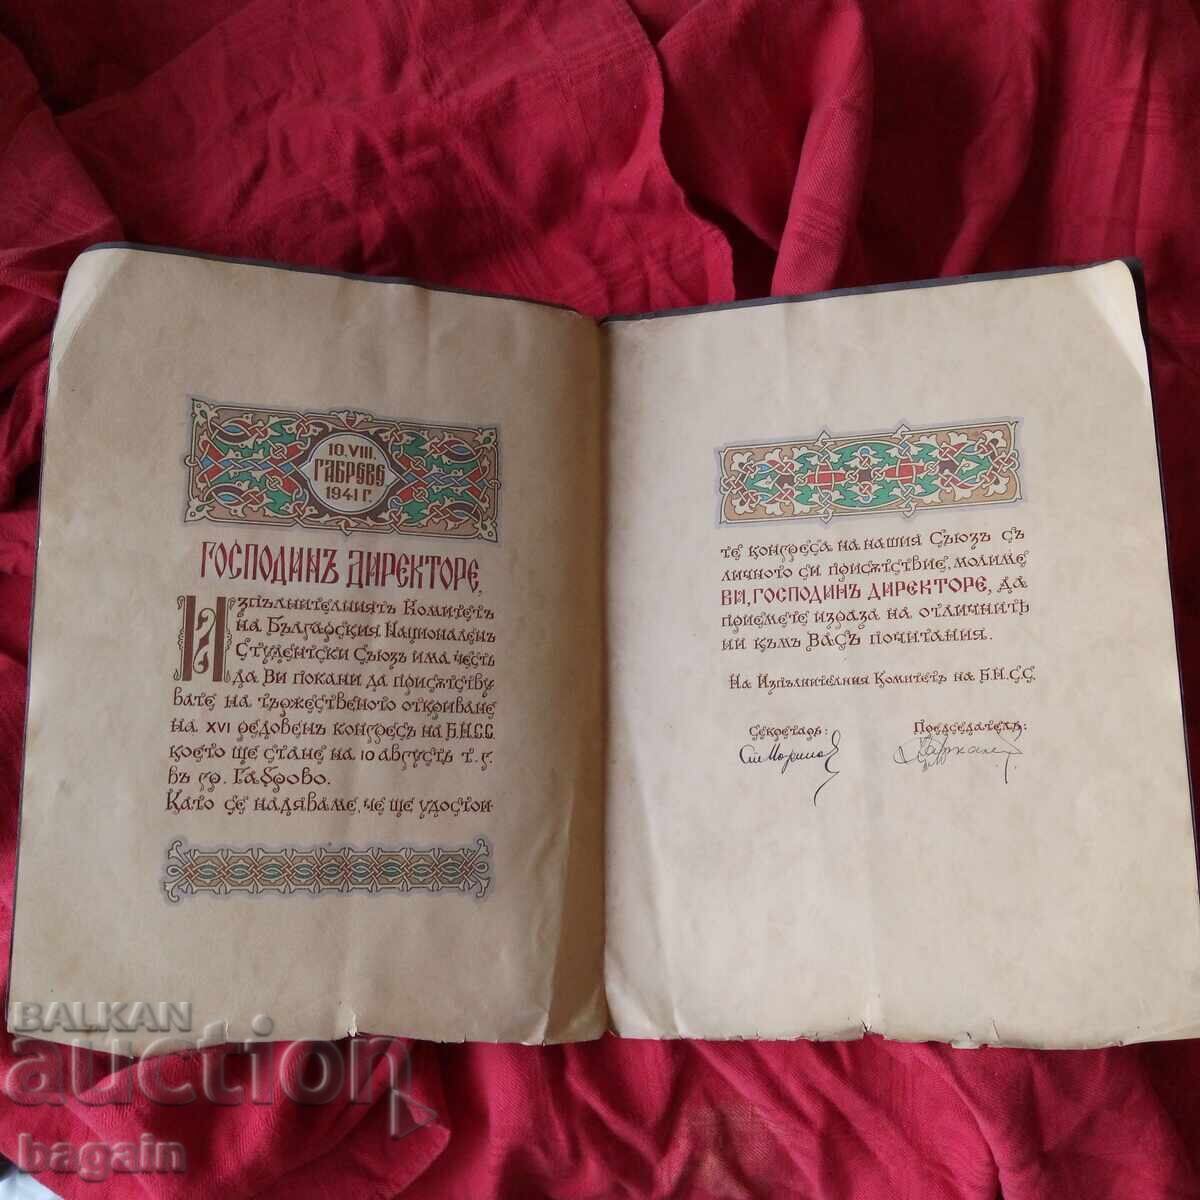 10.VIII.
ГАБРОВО
1941 Г.
ГОСПОДИНЪ ДИРЕКТОРЕ,
ИЗПЪЛНИТЕЛНИЯТЪ КОМИТЕТЪ
НА БЪЛГАРСКИЯ НАЦИОНАЛЕНЪ
СТУДЕНТСКИ СЪЮЗЪ ИМА ЧЕСТЬ
ДА ВИ ПОКАНИ ДА ПРИСѪТСТВУ
ВАТЕ НА ТЪРЖЕСТВЕНОТО ОТКРИВАНЕ
НА XVI РЕДОВЕНЪ КОНГРЕСЪ НА Б.Н.С.С.
КОЕТО ЩЕ СТАНЕ НА 10 АВГУСТЪ Т. Г.
ВЪ ГР. ГАБРОВО.
КАТО СЕ НАДЯВАМЕ, ЧЕ ЩЕ УДОСТОИ-
ТЕ КОНГРЕСА НА НАШИЯ СЪЮЗЪ СЪ
ЛИЧНОТО СИ ПРИСѪТСТВИЕ, МОЛИМЕ
ВИ, ГОСПОДИНЪ ДИРЕКТОРЕ, ДА
ПРИЕМЕТЕ ИЗРАЗА НА ОТЛИЧНИТѢ
НИ КЪМЪ ВАСЪ ПОЧИТАНИЯ.
НА ИЗПЪЛНИТЕЛНИЯ КОМИТЕТЪ НА Б.Н.С.С.
СЕКРЕТАРЬ: ПРЕДСЕДАТЕЛЬ:
BALKAN
auction
bagain